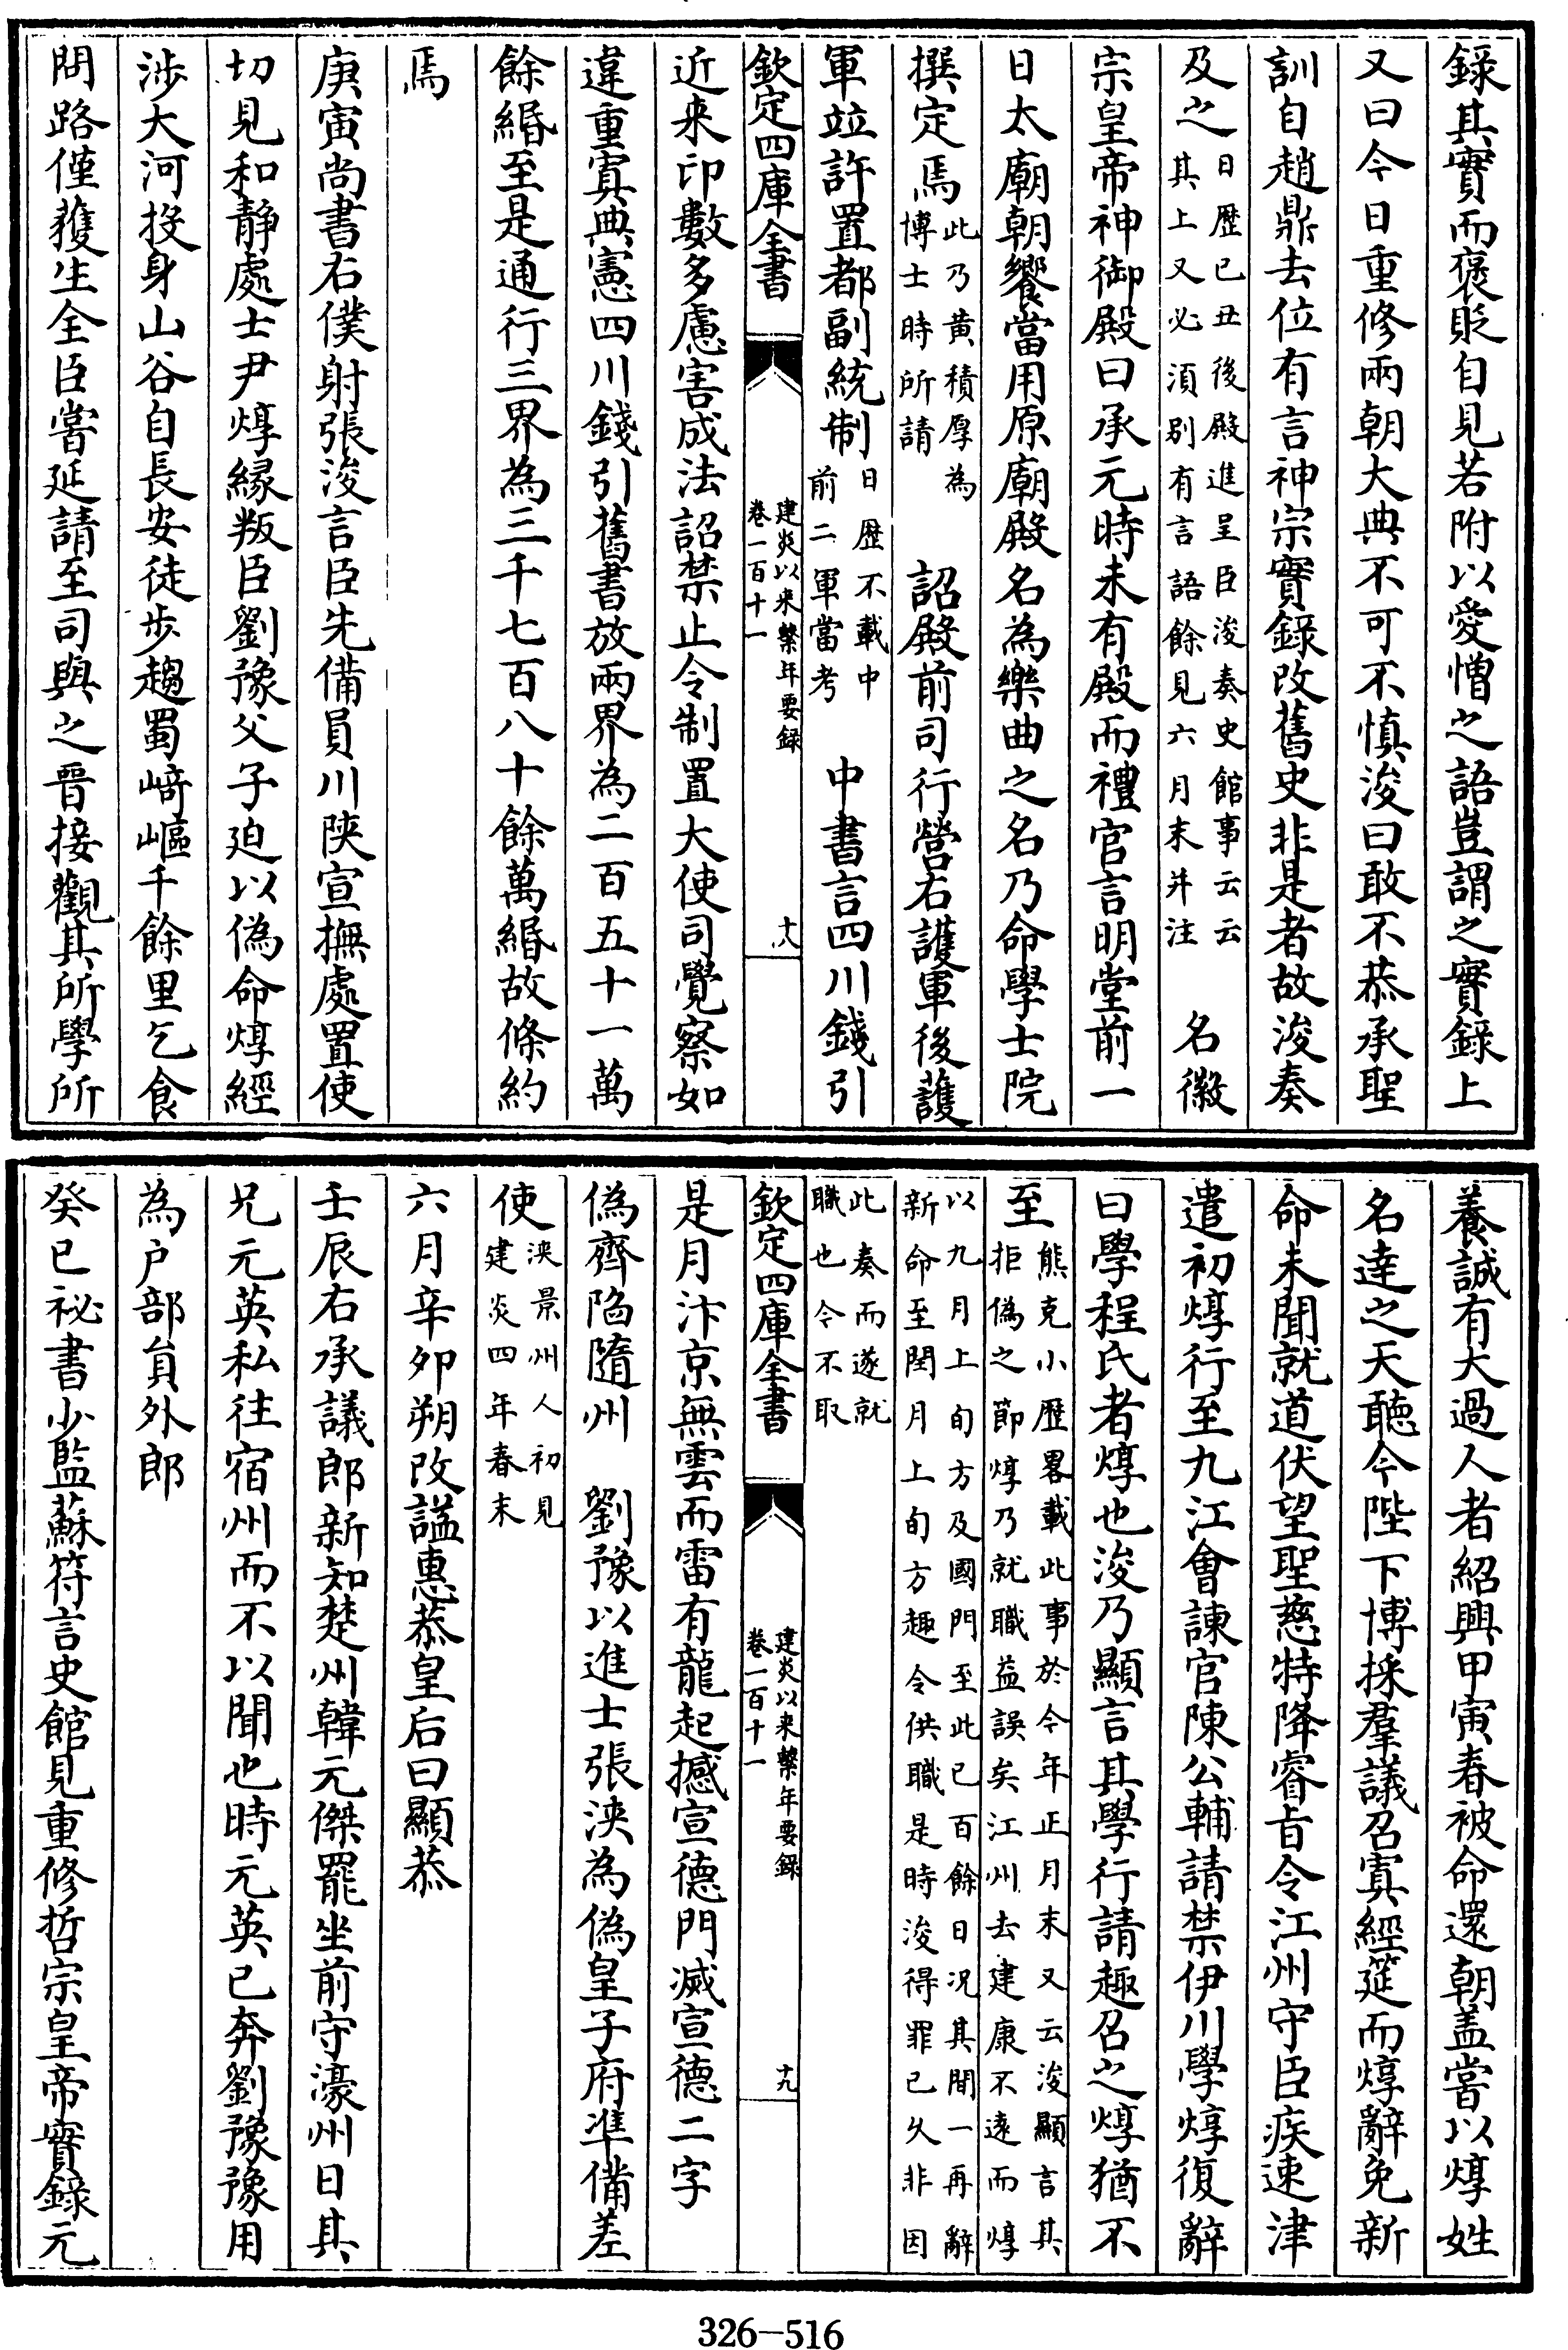 錄其實而褒貶自見若附以愛憎之語豈謂之實錄上
又曰今日重修兩朝大典不可不慎浚曰敢不恭承聖
訓自趙鼎去位有言神宗實錄改舊史非是者故浚奏
及之日歴己丑後殿進呈臣浚奏史館事云云
其上又必須別有言語餘見六月末并注 名徽
宗皇帝神御殿曰承元時未有殿而禮官言明堂前一
日太廟朝饗當用原廟殿名為樂曲之名乃命學士院
撰定焉此乃黄積厚為
博士時所請 詔殿前司行營右護軍後護
軍竝許置都副統制日歴不載中
前二軍當考 中書言四川錢引
欽定四庫全書
建炎以来繫年要録
卷一百十一
十八
近来印數多慮害成法詔禁止令制置大使司覺察如
違重寘典憲四川錢引舊書放兩界為二百五十一萬
餘緡至是通行三界為三千七百八十餘萬緡故條約
焉
庚寅尚書右僕射張浚言臣先備員川陜宣撫處置使
切見和静處士尹焞縁叛臣劉豫父子廹以偽命焞經
涉大河投身山谷自長安徒步趨蜀崎嶇千餘里乞食
問路僅獲生全臣嘗延請至司與之晉接觀其所學所
養誠有大過人者紹興甲寅春被命還朝盖嘗以焞姓
名達之天聽今陛下博採羣議召寘經筵而焞辭免新
命未聞就道伏望聖慈特降睿旨令江州守臣疾速津
遣初焞行至九江會諫官陳公輔請禁伊川學焞復辭
曰學程氏者焞也浚乃顯言其學行請趣召之焞猶不
至熊克小歴畧載此事於今年正月末又云浚顯言其
拒偽之節焞乃就職益誤矣江州去建康不遠而焞
以九月上旬方及國門至此已百餘日况其間一再辭
新命至閏月上旬方趣令供職是時浚得罪已久非因
此奏而遂就
職也今不取
欽定四庫全書
建炎以来繫年要録
卷一百十一
十九
是月汴京無雲而雷有龍起撼宣德門滅宣德二字
偽齊陷隨州 劉豫以進士張浹為偽皇子府準備差
使浹景州人初見
建炎四年春末
六月辛卯朔改謚惠恭皇后曰顯恭
壬辰右承議郎新知楚州韓元傑罷坐前守濠州日其
兄元英私往宿州而不以聞也時元英已奔劉豫豫用
為户部員外郎
癸巳祕書少監蘇符言史館見重修哲宗皇帝實錄元
326—516